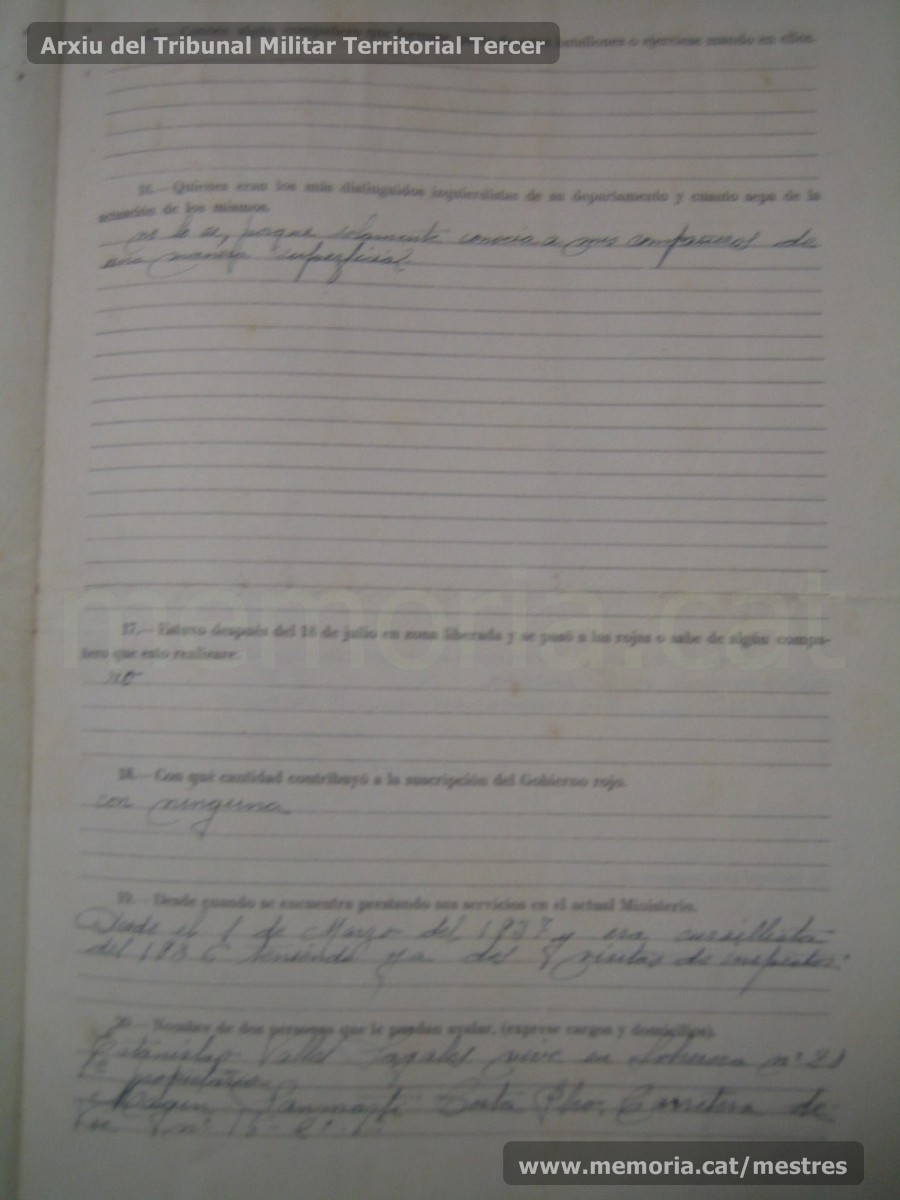 Arxiu del Tribunal Militar Territorial Tercer
batallones o ejerciese mando en ellos.
16.— Quienes eran los más distinguidos izquierdistas de su departamento y cuanto sepa de la
actuación de los mismos.
no lo se, porque solamente conocia a mis compañeros de
una manera superficial.
memoria.cat
17.— Estuvo después del 18 de julio en zona liberada y se pasó a los rojos o sabe de algún compa-
ñero que esto realizare.
no
18.— Con qué cantidad contribuyó a la suscripción del Gobierno rojo.
con ninguna
19.— Desde cuando se encuentra prestando sus servicios en el actual Ministerio.
Desde el 1 de Marzo del 1937 y era cursillista
del 1936 teniendo ya dos visitas de inspector.
20.— Nombre de dos personas que le puedan avalar, (exprese cargos y domicilios).
Estanislao Valles vive en nº 21
propietario.
Carretera de
nº
www.memoria.cat/mestres